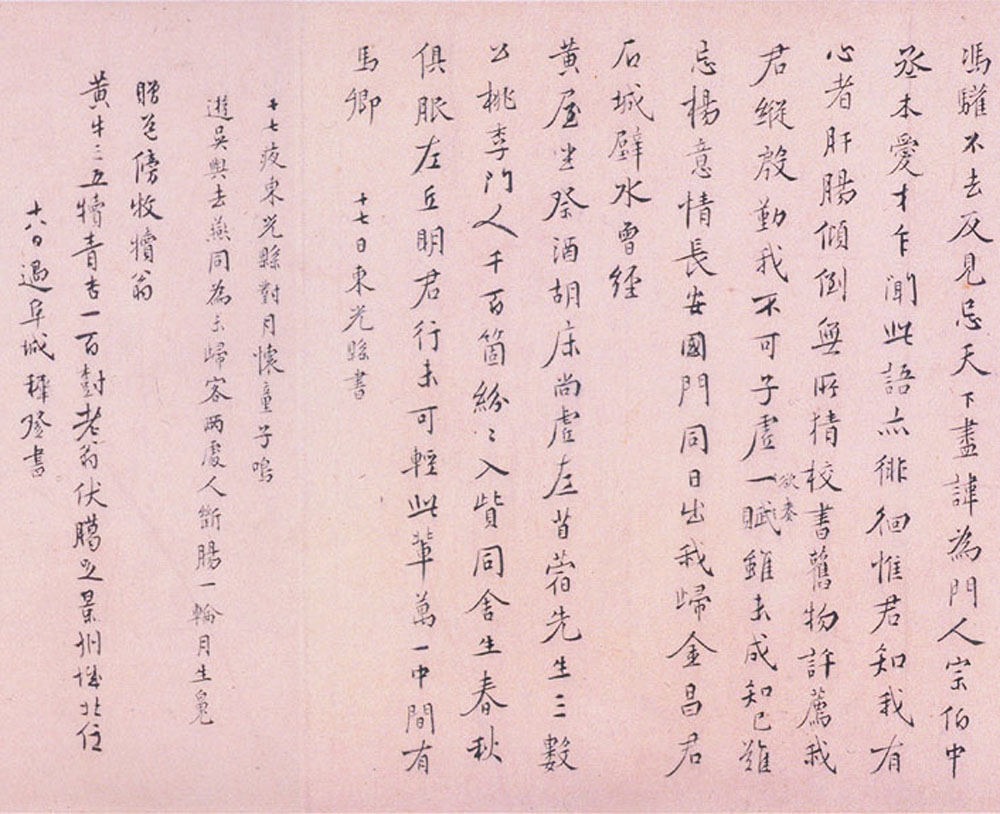 馮驩不去反見忌天下盡諱為門人宗伯中
丞本愛才乍聞此語亦徘徊惟君知我有
心者肝腸傾倒無所猜校書舊物許薦我
君縱殷勤我不可子虛一賦雖未成知己難
欲奏
忌楊意情長安國門同日出我歸金昌君
石城壁水曾經
黃屋坐祭酒胡床尚虛左苜蓿先生三數
公桃李門人千百箇紛〻入貲同舍生春秋
俱服左丘明君行未可輕此輩萬一中間有
馬卿
十七日東光縣書
十七夜東光縣對月懷童子鳴
遊吳與去燕同為未歸客兩處人斷腸一輪月生魄
贈邑傍牧犢翁
黃牛三五犢青杏一百對老翁伏臘之景州城北住
十八日過阜城穉登書